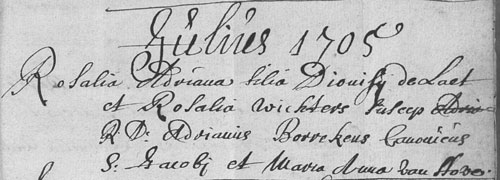 Julius 1705
Rosalia Adriana filia Dionisij de Laet
et Rosalia Wickters Suscep
R. D. Adrianus Borrekens Canonicus
S. Jacobj et Maria Anna van Hove.